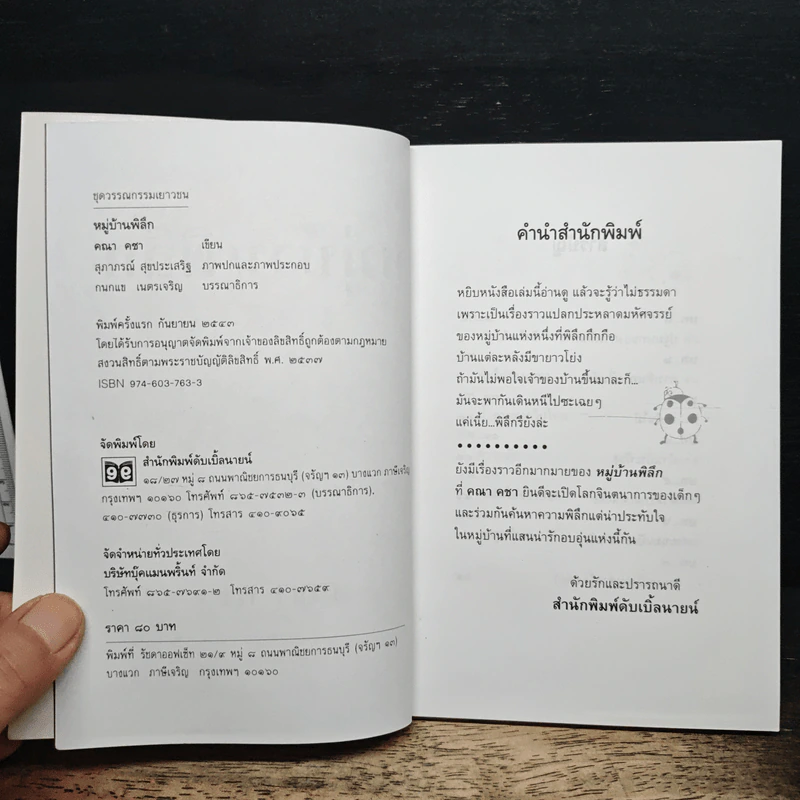 ชุดวรรณกรรมเยาวชน
หมู่บ้านพิลึก
คณา คชา เขียน
สุภาภรณ์ สุขประเสริฐ ภาพปกและภาพประกอบ
กนกแข เนตรเจริญ บรรณาธิการ
พิมพ์ครั้งแรก กันยายน ๒๕๔๓
โดยได้รับการอนุญาตจัดพิมพ์จากเจ้าของลิขสิทธิ์ถูกต้องตามกฎหมาย
สงวนสิทธิ์ตามพระราชบัญญัติลิขสิทธิ์ พ.ศ. ๒๕๓๗
ISBN 974-603-763-3
จัดพิมพ์โดย
สำนักพิมพ์ดับเบิ้ลนายน์
๑๘/๒๗ หมู่ ๘ ถนนพาณิชยการธนบุรี (จรัญฯ ๑๓) บางแวก ภาษีเจริญ
กรุงเทพฯ ๑๐๑๖๐ โทรศัพท์ ๘๖๕-๗๕๓๒-๓ (บรรณาธิการ).
๔๑๐-๗๗๓๐ (ธุรการ) โทรสาร ๔๑๐-๙๐๖๕
จัดจำหน่ายทั่วประเทศโดย
บริษัทบุ๊คแมนพริ้นท์ จำกัด
โทรศัพท์ ๘๖๕-๗๖๙๑-๒ โทรสาร ๔๑๐-๗๖๕๙
ราคา ๘๐ บาท
พิมพ์ที่ รัชดาออฟเซ็ท ๒๑/๙ หมู่ ๘ ถนนพาณิชยการธนบุรี (จรัญฯ ๑๓)
บางแวก ภาษีเจริญ กรุงเทพฯ ๑๐๑๖๐
คำนำสำนักพิมพ์
หยิบหนังสือเล่มนี้อ่านดู แล้วจะรู้ว่าไม่ธรรมดา
เพราะเป็นเรื่องราวแปลกประหลาดมหัศจรรย์
ของหมู่บ้านแห่งหนึ่งที่พิลึกกึกกือ
บ้านแต่ละหลังมีขายาวโย่ง
ถ้ามันไม่พอใจเจ้าของบ้านขึ้นมาละก็...
มันจะพากันเดินหนีไปซะเฉยๆ
แค่เนี้ย...พิลึกรึยังล่ะ
••••••••••
ยังมีเรื่องราวอีกมากมายของ หมู่บ้านพิลึก
ที่ คณา คชา ยินดีจะเปิดโลกจินตนาการของเด็กๆ
และร่วมกันค้นหาความพิลึกแต่น่าประทับใจ
ในหมู่บ้านที่แสนน่ารักอบอุ่นแห่งนี้กัน
ด้วยรักและปรารถนาดี
สำนักพิมพ์ดับเบิ้ลนายน์